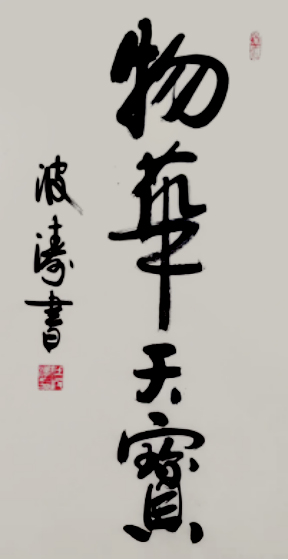 物華天寶
波濤書